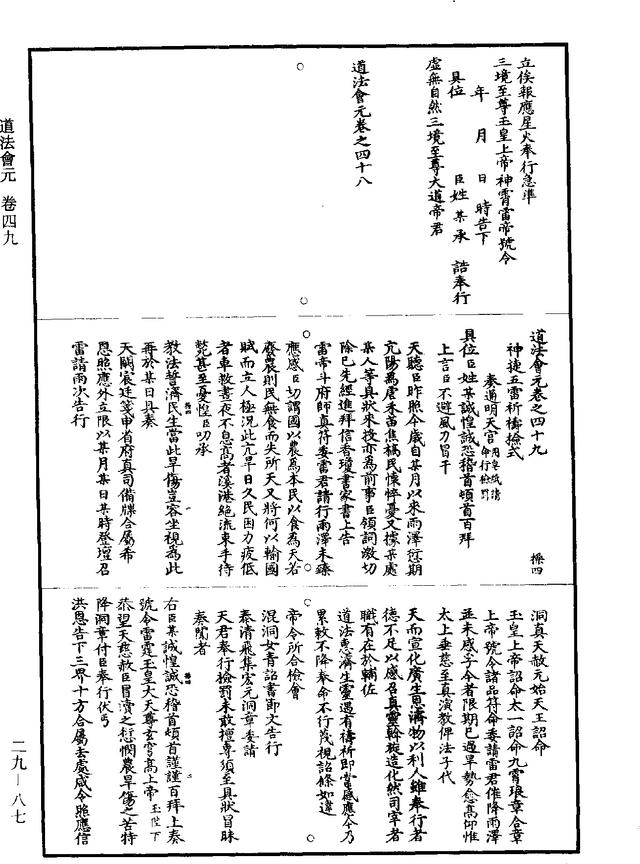 道法會元　卷四九
二九—八七
立俟報應星火奉行急準
三境至尊玉皇上帝神霄雷帝號令
年　月　日　時告下
具位　臣姓某承　誥奉行
虛無自然三境至尊大道帝君
道法會元卷之四十八
道法會元卷之四十九　㯶四
神捷五雷祈禱檢式
奏道明天宮
具位臣姓某誠惶誠恐稽首頓首百拜
上言臣不避風刀冒干
天聽臣昨照今歲自某月以來雨澤愆期
亢陽為虐禾苗焦槁民懷悴憂又據某處
某人等具狀來投亦為前事臣領詞激切
除已先經進拜信香瓊書家書上告
雷帝斗府師真符委雷君請行雨澤未臻
應感臣切謂國以農為本民以食為天若
廢農則民無食而失所天又將何以輸國
賦而立人極況此亢旱日久民困力疲低
者車救晝夜不息高者溪港絕流束手待
斃甚至憂惶臣叨承
教法誓濟民生當此旱傷豈容坐視為此
再於某日具奏
天闕宸廷箋申省府真司備牒合屬希
恩照應外立限以某月某日某時登壇召
雷請雨次告行
洞真天赦元始天王詔命
玉皇上帝詔命太一詔命九霄琅章合章
上帝號令諸品符命委請雷君催降雨澤
並未感孚今者限期已過旱勢愈高仰惟
太上垂慈至真演教俾法子代
天而宣化廣生思濟物以利人雖奉行者
德不足以感召真靈斡旋造化然司宰者
職有在於輔佐
道法惠濟生靈遇有禱祈即當感應今乃
累敕不降奉命不行茂視詔條如違
帝令所合檢會
混洞女青詔書節文告行
泰清飛集宏元洞章委請
天君奉行檢罰未敢擅專須至具狀冒昧
奏聞者
右臣某誠惶誠恐稽首頓首謹謹百拜上奏
號令雷霆玉皇大天尊玄穹高上帝玉陛下
恭望天慈赦臣冒瀆之愆憫農旱傷之苦特
降洞章付臣奉行伏丐
洪恩告下三界十方合屬去處咸令照應信